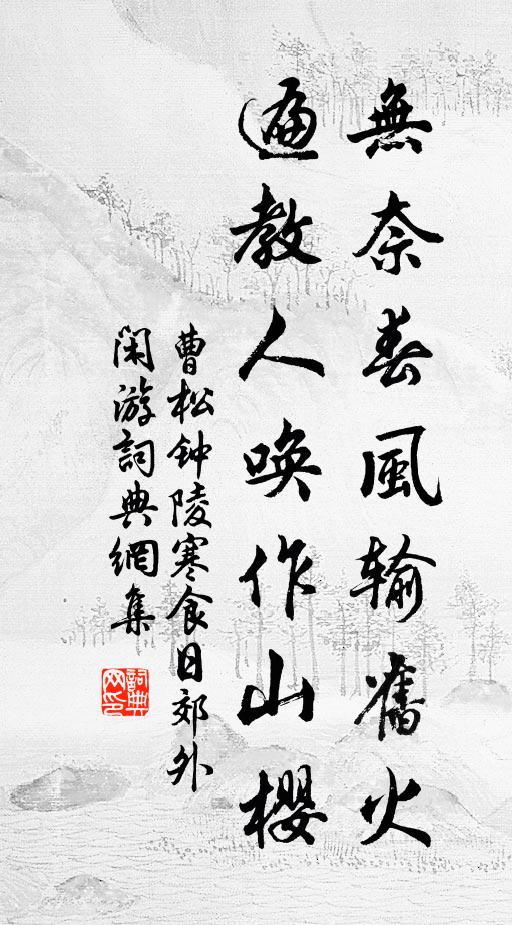 無奈春風输舊火
遍教人唤作山櫻
曹松钟陵寒食日郊外
闲游詞典網集
詞典
网印